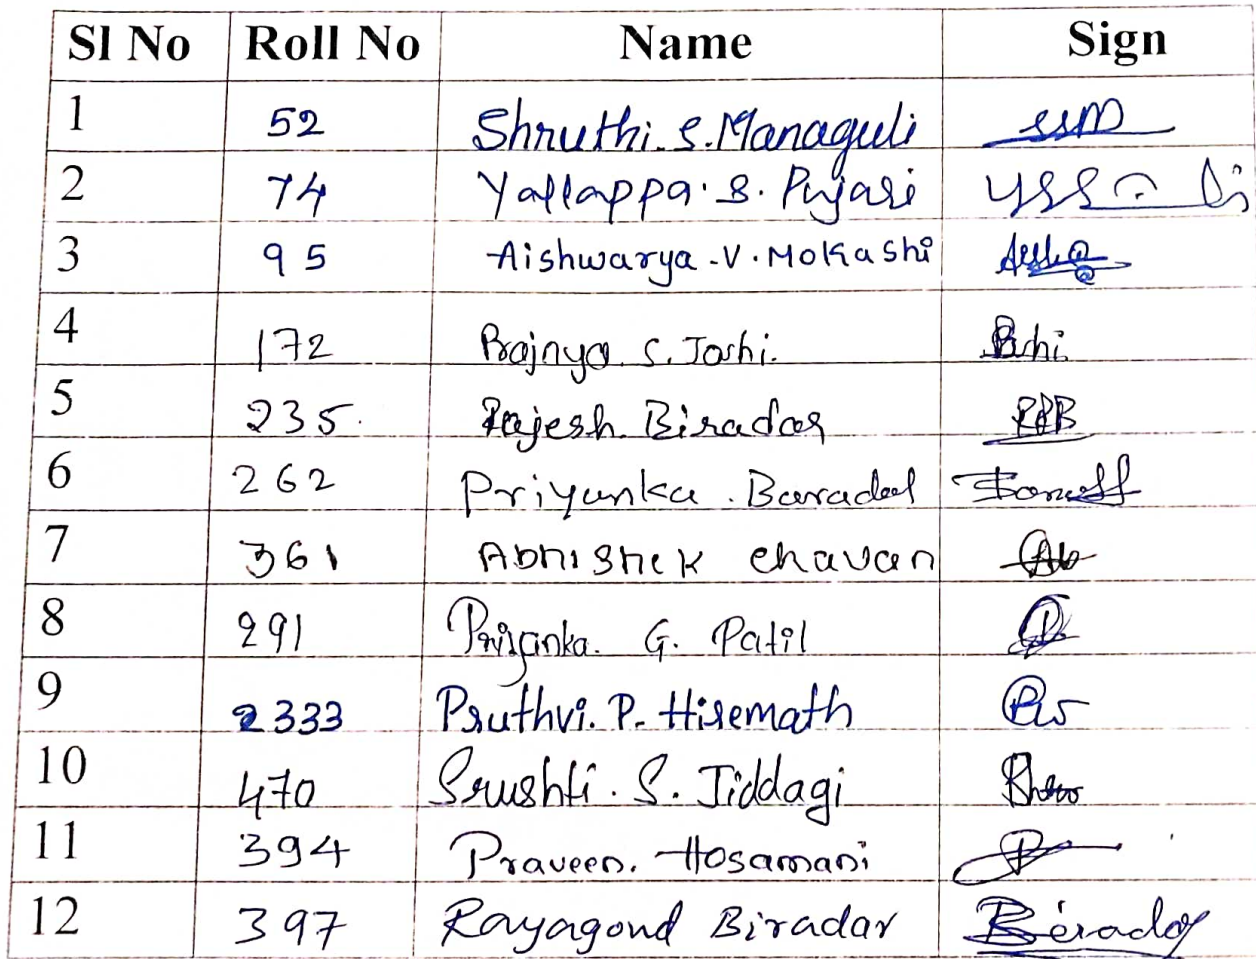 Sl No Roll No Name Sign
1 52 Shruthi. S. Managuli ssm
2 74 Yallappa. S. Pujari
3 95 Aishwarya .V. Mokashi
4 172 Prajnya S. Joshi.
5 235. Rajesh. Biradar RRB
6 262 Priyanka . Baradol
7 361 Abhishek chavan
8 291 Priyanka. G. Patil
9 2333 Pruthvi. P. Hiremath
10 470 Srushti . S. Jiddagi
11 394 Praveen. Hosamani
12 397 Rayagond Biradar Birador